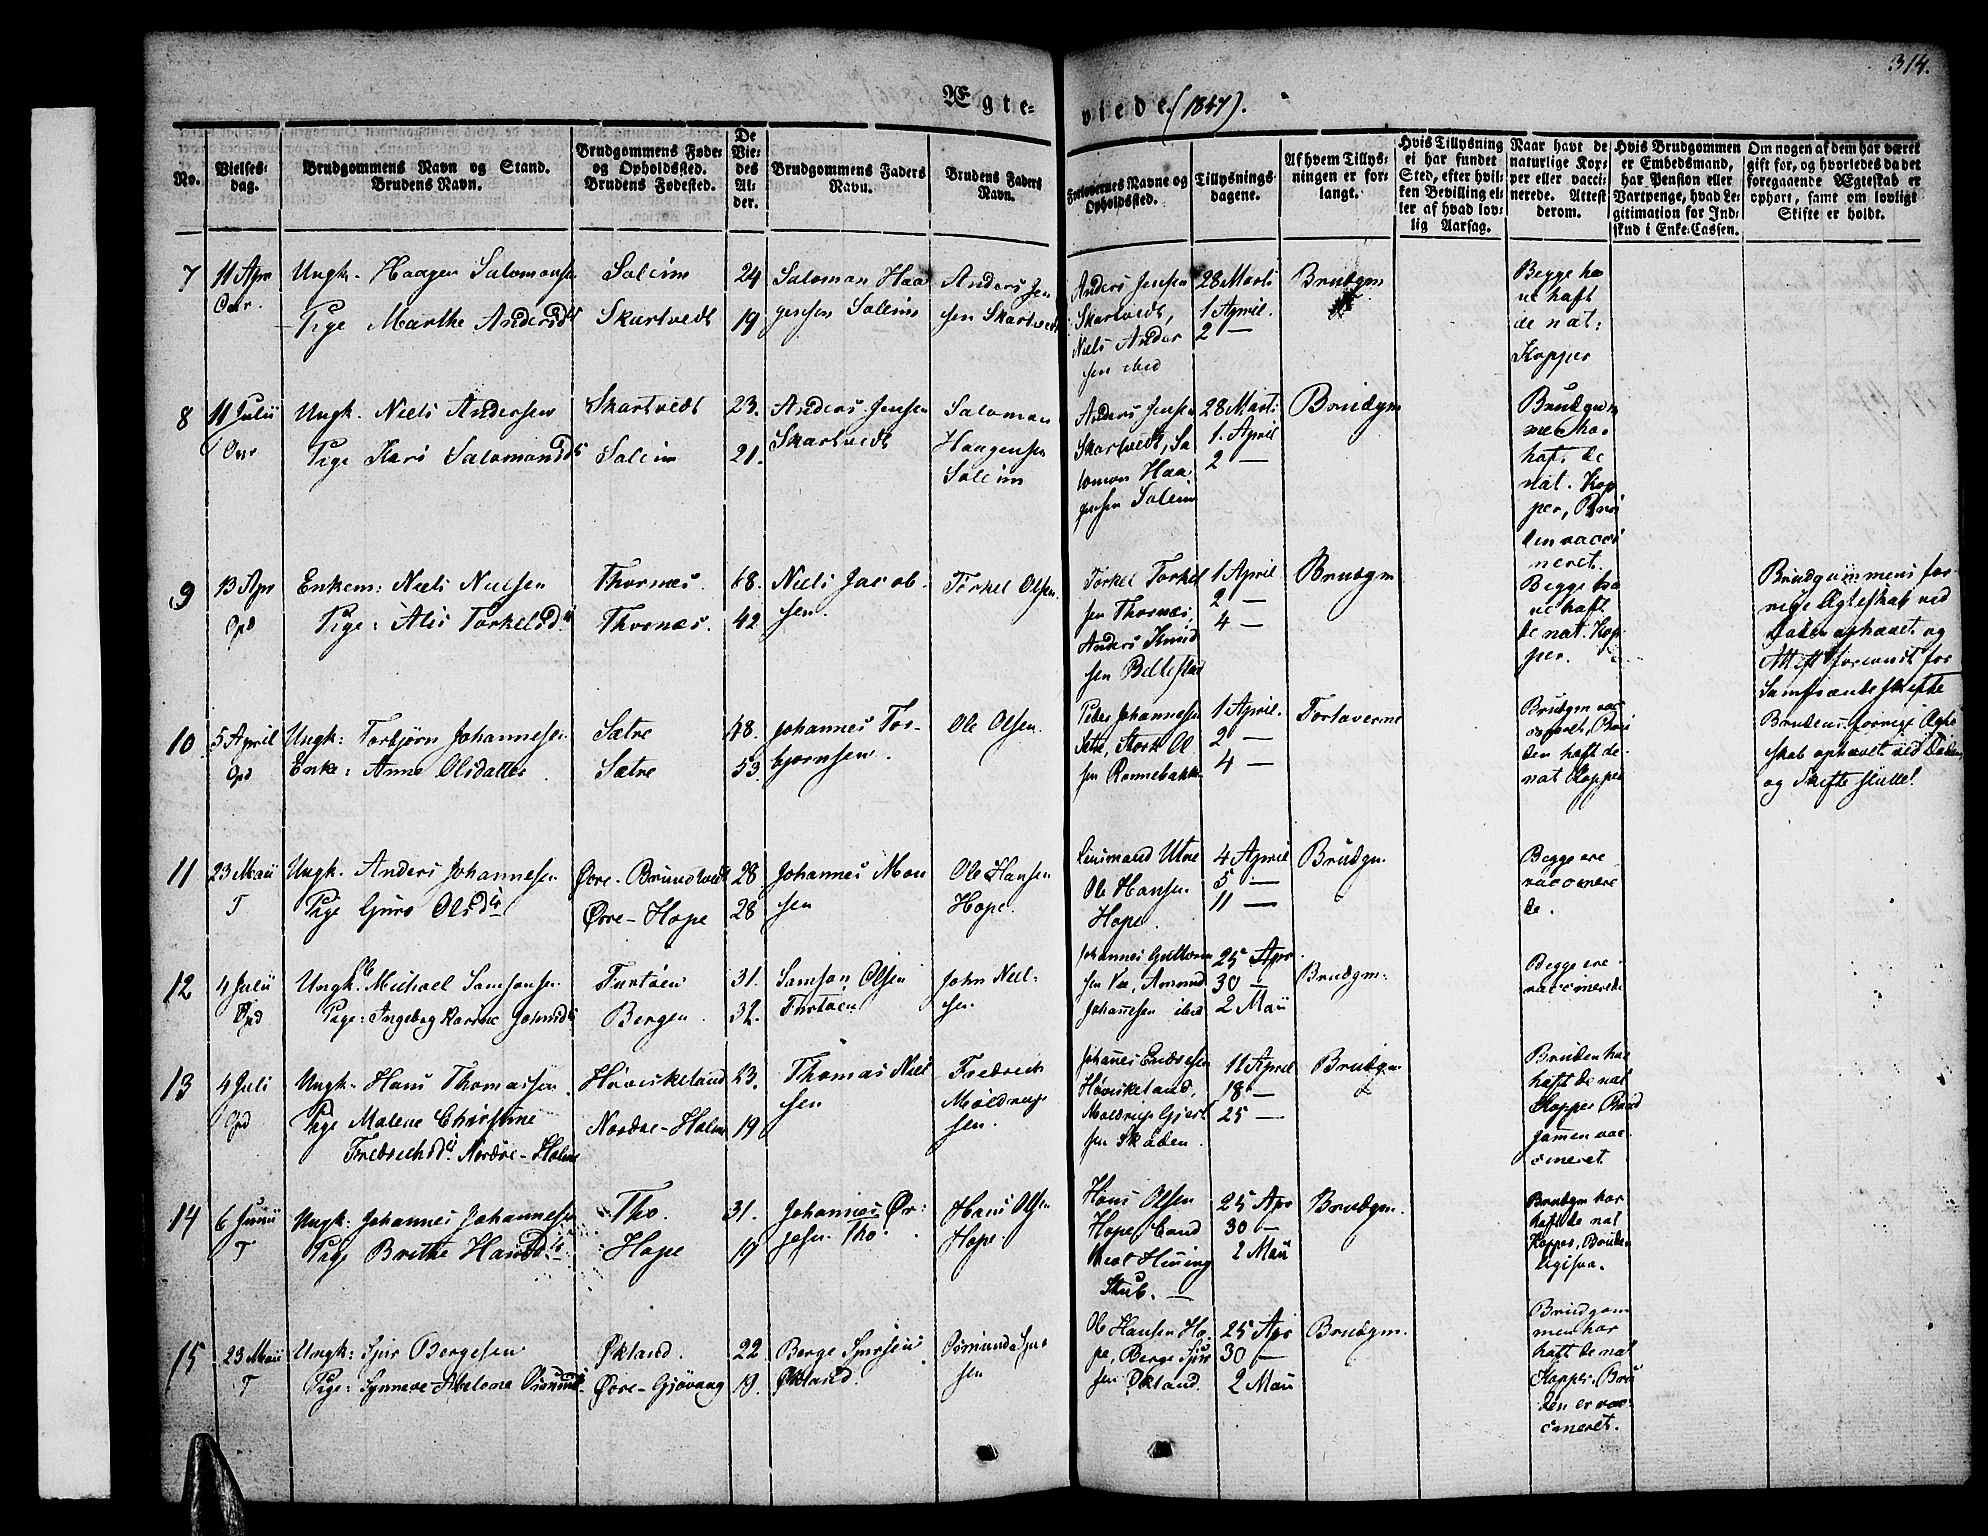 314.
Ægte=
viede. (1847).
No.
Vielses-
dag.
Brudgommens Navn og Stand.
Brudens Navn.
Brudgommens Føde-
og Opholdssted.
Brudens Fødested.
De
Vie-
des
Al-
der.
Brudgommens Faders
Navn.
Brudens Faders
Navn.
Forlovernes Navne og
Opholdssted.
Tillysnings-
dagene.
Af hvem Tillys-
ningen er for-
langt.
Hvis Tillysning
ei har fundet
Sted, efter hvil-
ken Bevilling el-
ler af hvad lov-
lig Aarsag.
Naar havt de
naturlige Kop-
per eller vacci-
nerede. Attest
derom.
Hvis Brudgommen
er Embedsmand,
har Pension eller
Vartpenge, hvad Le-
gitimation for Ind-
skud i Enke-Cassen.
Om nogen af dem har været
gift før, og hvorledes da det
foregaaende Ægteskab er
ophørt, samt om lovligt
Skifte er holdt.
7
11 Apr
Ungk. Haagen Salomonsen
Pige Marthe Andersdt
Saleim
Skartvedt
24
19
Saloman Haa
gensen Saleim
Anders Jen
sen Skartvedt
Anders Jensen
Skartvedt,
Niels Ander
sen ibid
28 Marts
1 April.
2 —
Brudgm
Begge ha
ve haft
de nat:
Kopper
8
11 Julii
Ungk. Niels Andersen
Pige Kari Salomonsdt
Skartvedt
Saleim
23.
21.
Anders Jensen
Skartvedt
Saloman
Haagensen
Saleim
Anders Jensen
Skartvedt, Sa
lomon Haa
gensen Saleim
28 Mart:
1. April
2 —
Brudgm
Brudgom
men har
haft de
nat. Kop
per, Bru
den vacci
neret.
9
13 Apr
Opd
Enkem: Niels Nielsen
Pige: Alis Torkelsd.
Thornæs.
Thornæs.
68.
42
Niels Jacob-
sen.
Torkel Olsen.
Torkel Torkel
sen Thornæs,
Anders Knud
sen Bellestad
1 April
2 —
4 —
Brudgm
Begge ha
ve haft
de nat. Kop
per.
Brudgommens for
rige Ægteskab ved
Døden ophævet og
Attest forevist for
Samfrændeskifte
10
5 April
Opd
Ungk: Torbjørn Johannesen
Enke: Anne Olsdatter
Sætre
Sætre
48.
53.
Johannes Tor-
bjørnsen.
Ole Olsen.
Peder Johannesen
Sætre, Stork Ol
sen Rønnebakke
1 April.
2 —
4 —
Forloverne
Brudgm vac
cineret, Bru
den haft de
nat Kopper
Brudens forrige Ægte
skab ophævet ved Døden
og Skifte sluttet
11
23 Maii
T
Ungk. Anders Johannesen
Pige Guro Olsdt
Øvre-Brundtvedt
Øvre-Hope
28
28
Johannes Mon
sen
Ole Hansen
Hope.
Lensmand Utne
Ole Hansen
Hope.
4 April
5 —
11 —
Brudgm.
Begge ere
vaccinere
de.
12
4 Julii
Opd
Ungk. Michael Samsonsen
Pige: Ingeborg Karine Johnsdt
Furtøen
Bergen
31.
32.
Samson Olsen
Furtøen
John Niel-
sen
Johannes Guttorm
sen Næ, Amund
Johannesen ibid
25 Apr.
30 —
2 Maii
Brudgm.
Begge ere
vaccinerede
13
4 Juli
Opd
Ungk. Hans Thomassen
Pige Malene Christine
Fredrichsdt. Nordre-Holme
Høviskeland
Nordre-Holme
23.
19
Thomas Niel
sen
Fredrich
Moldrup
sen.
Johannes Endresen
Høviskeland,
Moldrup Gjert
sen Skaben.
11 April
18 —
25 —
Brudgm
Bruden har
haft de nat
Kopper Brud
gommen vac
cineret
14
6 Junii
T
Ungk. Johannes Johannesen
Pige Brithe Hansdt.
Tho.
Hope
31.
19
Johannes Ør:
jasen Tho.
Hans Olsen
Hope.
Hans Olsen
Hope, Cand
theol Hening
Stub. —
25 Apr
30 —
2 Maii
Brudgm.
Brudgm har
haft de nat
Kopper, Bruden
ligesaa.
15
23 Maii
T
Ungk: Sjur Bergesen
Pige: Synneve Abelone Osmundsdt
Økland.
Øvre-Gjøvaag
22
19.
Berge Sjursen
Økland.
Osmund Sjur
sen
Ole Hansen Ho
pe, Berge Sjur
sen Økland.
25 Apr
30 —
2 Maii
Brudgm.
Brudgom
men har
haft de nat
Kopper, Bru
den er vac-
cineret.